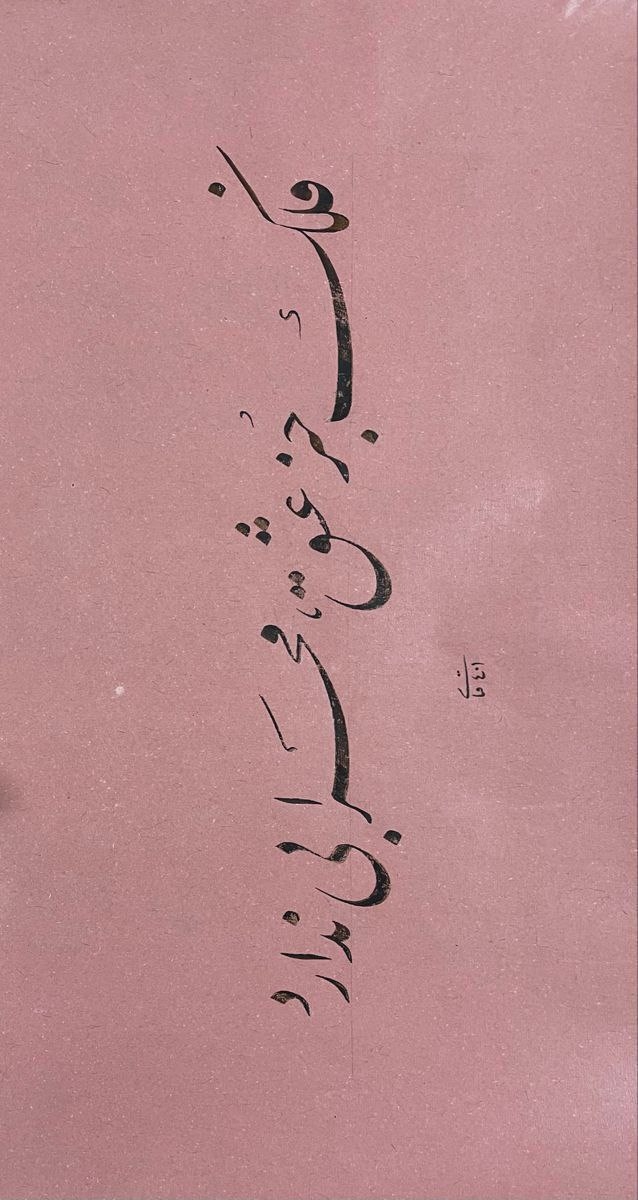 فلک جُز عشق، محرابی ندارد